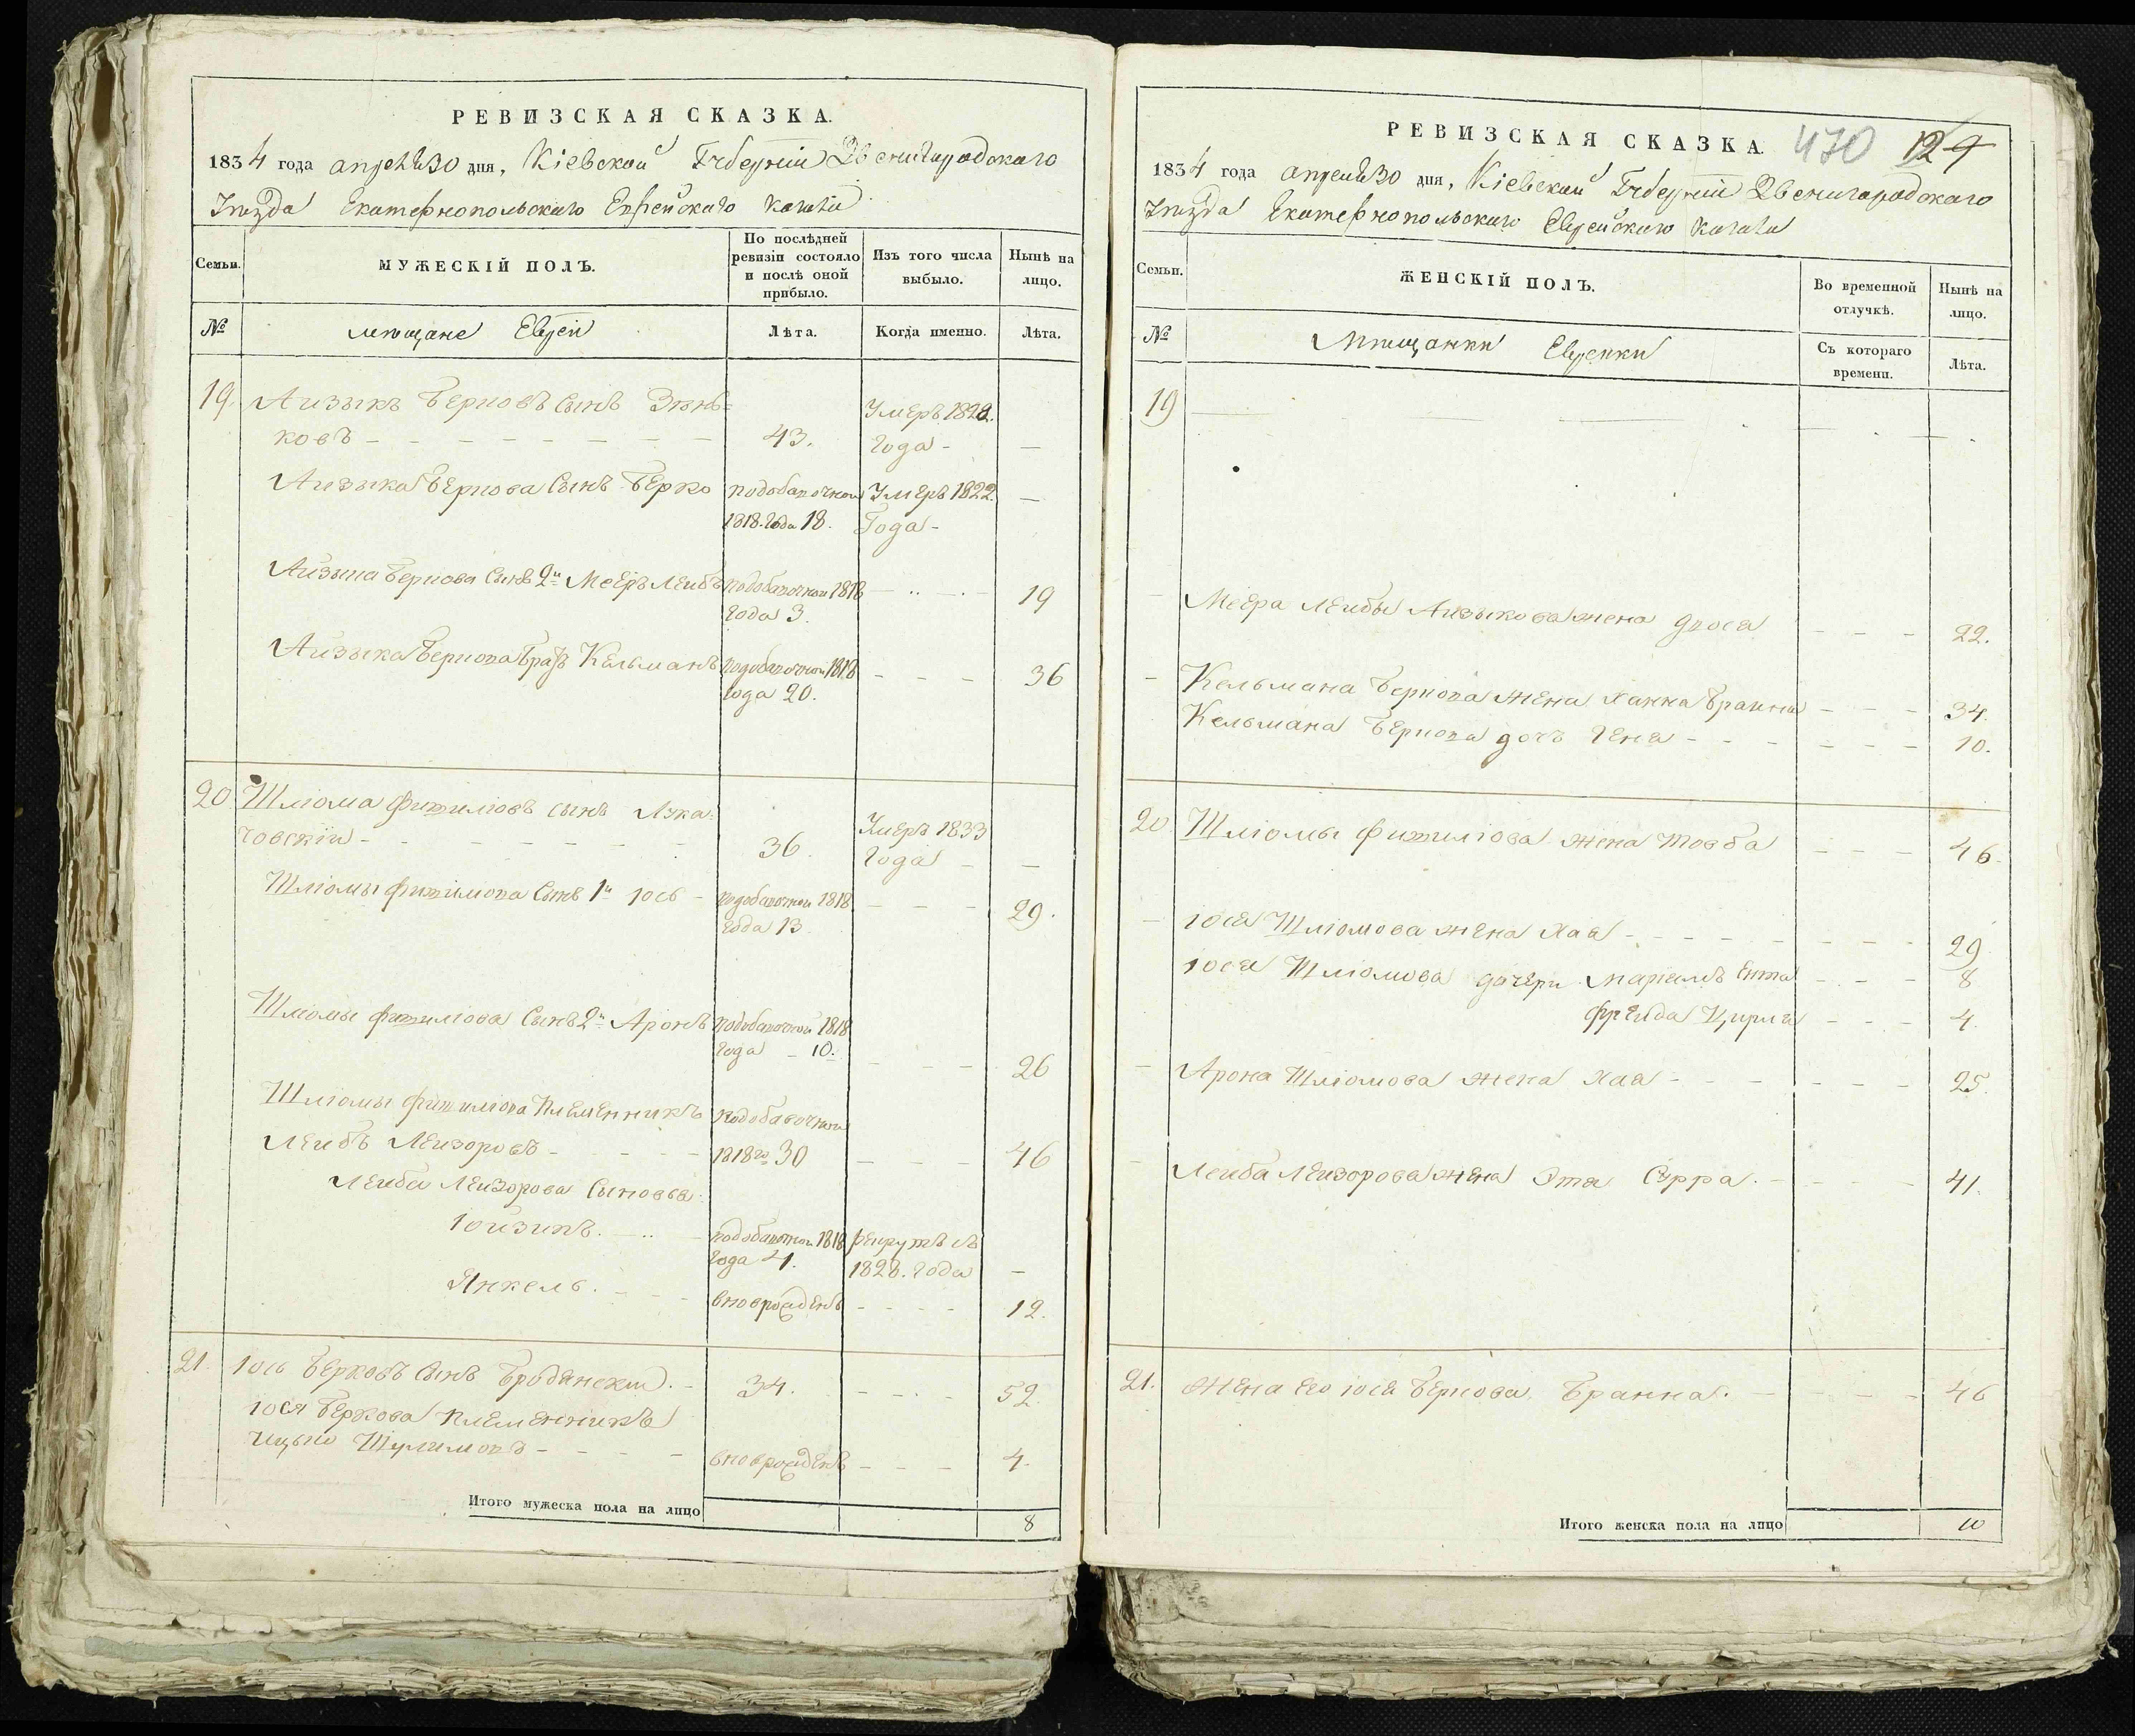 РЕВИЗСКАЯ СКАЗКА.
1834 года апреля 30 дня, Кіевской Губерніи Звенигородского
Уѣзда Екатеринопольского Еврейского кагала
Семьи.
МУЖЕСКІЙ ПОЛЪ.
По послѣдней
ревизіи состояло
и послѣ оной
прибыло.
Изъ того числа
выбыло.
Нынѣ на
лицо.
№
мѣщане Евреи
Лѣта.
Когда именно.
Лѣта.
19. Айзыкъ Берковъ сынъ Зинь=
ковъ - 43. Умеръ 1828. года - —
Айзыка Беркова сынъ Берко
подобавочной 1818. года 18. Умеръ 1822. года - —
Айзыка Беркова сынъ 2й Мееръ Лейбъ
подобавочной 1818 года 3. 19
Айзыка Беркова братъ Кельманъ
подобавочной 1818 года 20. 36
20 Шліома Фишиліовъ сынъ Лука=
човскій - 36. Умеръ 1833 года - —
Шліомы Фишиліова сынъ 1й Іось -
подобавочной 1818 года 13. 29.
Шліомы Фишиліова сынъ 2й Аронъ
подобавочной 1818 года - 10. 26
Шліомы Фишиліова племенникъ
Лейбъ Лейзоровъ -
подобавочной 1818го 30 46
Лейба Лейзорова сыновья:
Іойзипъ.
подобавочной 1818 года 4. рекрутъ съ 1828. года —
Янкель. вноврожденъ 12.
21. Іось Берковъ сынъ Бродянскій. - 34. 52.
Іося Беркова племенникъ
Ицько Шулимовъ - вноврожденъ 4.
Итого мужеска пола на лицо 8
РЕВИЗСКАЯ СКАЗКА
470 124
1834 года апреля 30 дня, Кіевской Губерніи Звенигородского
Уѣзда Екатеринопольского Еврейского кагала
Семьи.
ЖЕНСКІЙ ПОЛЪ.
Во временной
отлучкѣ.
Нынѣ на
лицо.
№
Мѣщанки Еврейки
Съ котораго
времени.
Лѣта.
19
Меера Лейбы Айзыкова жена Двося 22.
Кельмана Беркова жена Ханна Браина 34.
Кельмана Беркова дочь Геня - 10.
20. Шліомы Фишиліова жена Товба 46.
Іося Шліомова жена Хая - 29
Іося Шліомова дочери Маріамъ Ента 8
Фрейда Цирля 4.
Арона Шліомова жена Хая - 25.
Лейба Лейзорова жена Эта Сурра. 41.
21. Жена его Іося Беркова Бранна. 46
Итого женска пола на лицо 10